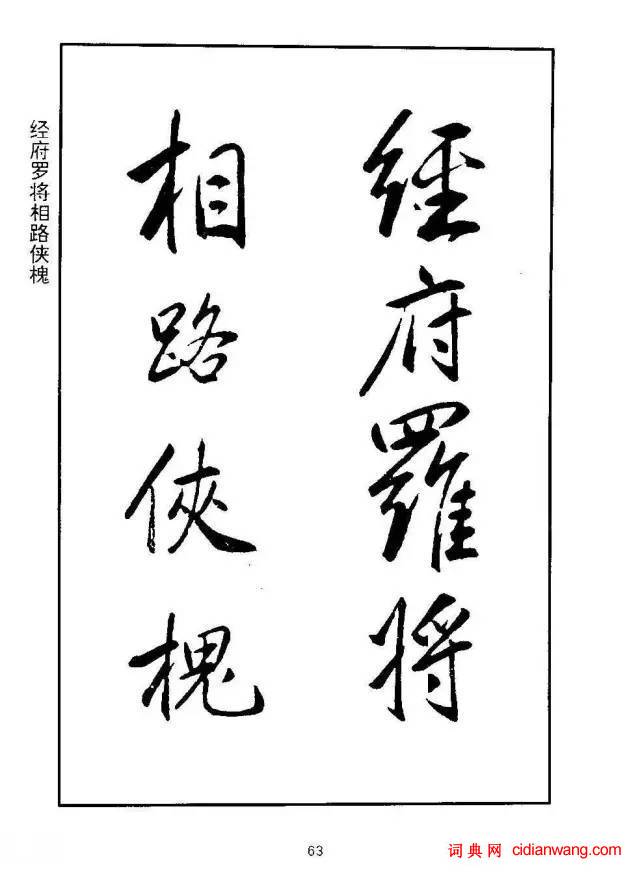 經府羅將
相路俠槐
经府罗将相路侠槐
63
词典网 cidianwang.com